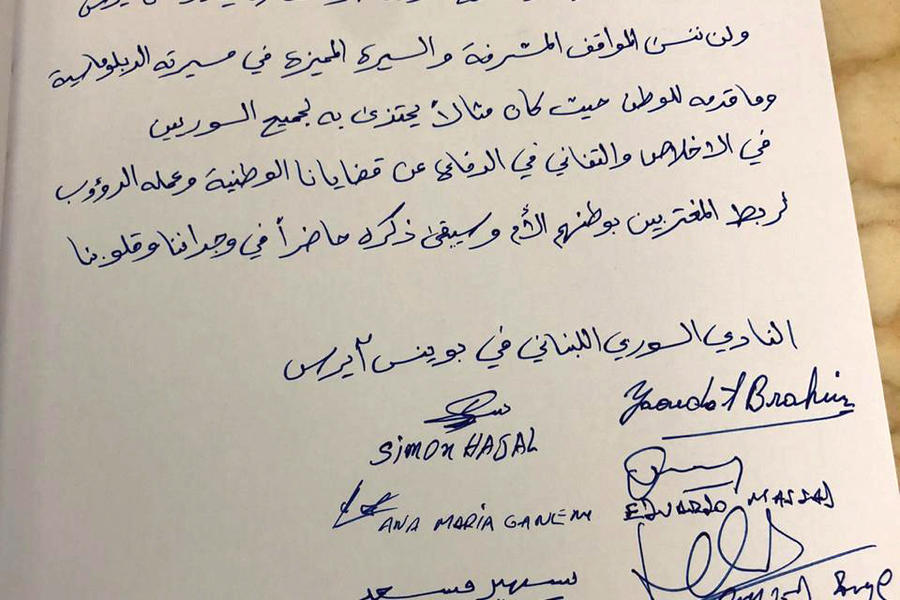 ولن ننسى المواقف المشرفة والسيرة المميزة في مسيرته الدبلوماسية
وما قدمه للوطن حيث كان مثالاً يحتذى به لجميع السوريين
في الاخلاص والتفاني في الدفاع عن قضايانا الوطنية وعمله الدؤوب
لربط المغتربين بوطنهم الأم وسيبقى ذكره حاضراً في وجداننا وقلوبنا
النادي السوري اللبناني في بوينس آيرس
Brahim
SIMON HAJAL
EDUARDO MASSAD
ANA MARIA GANEM
سهير مسعد